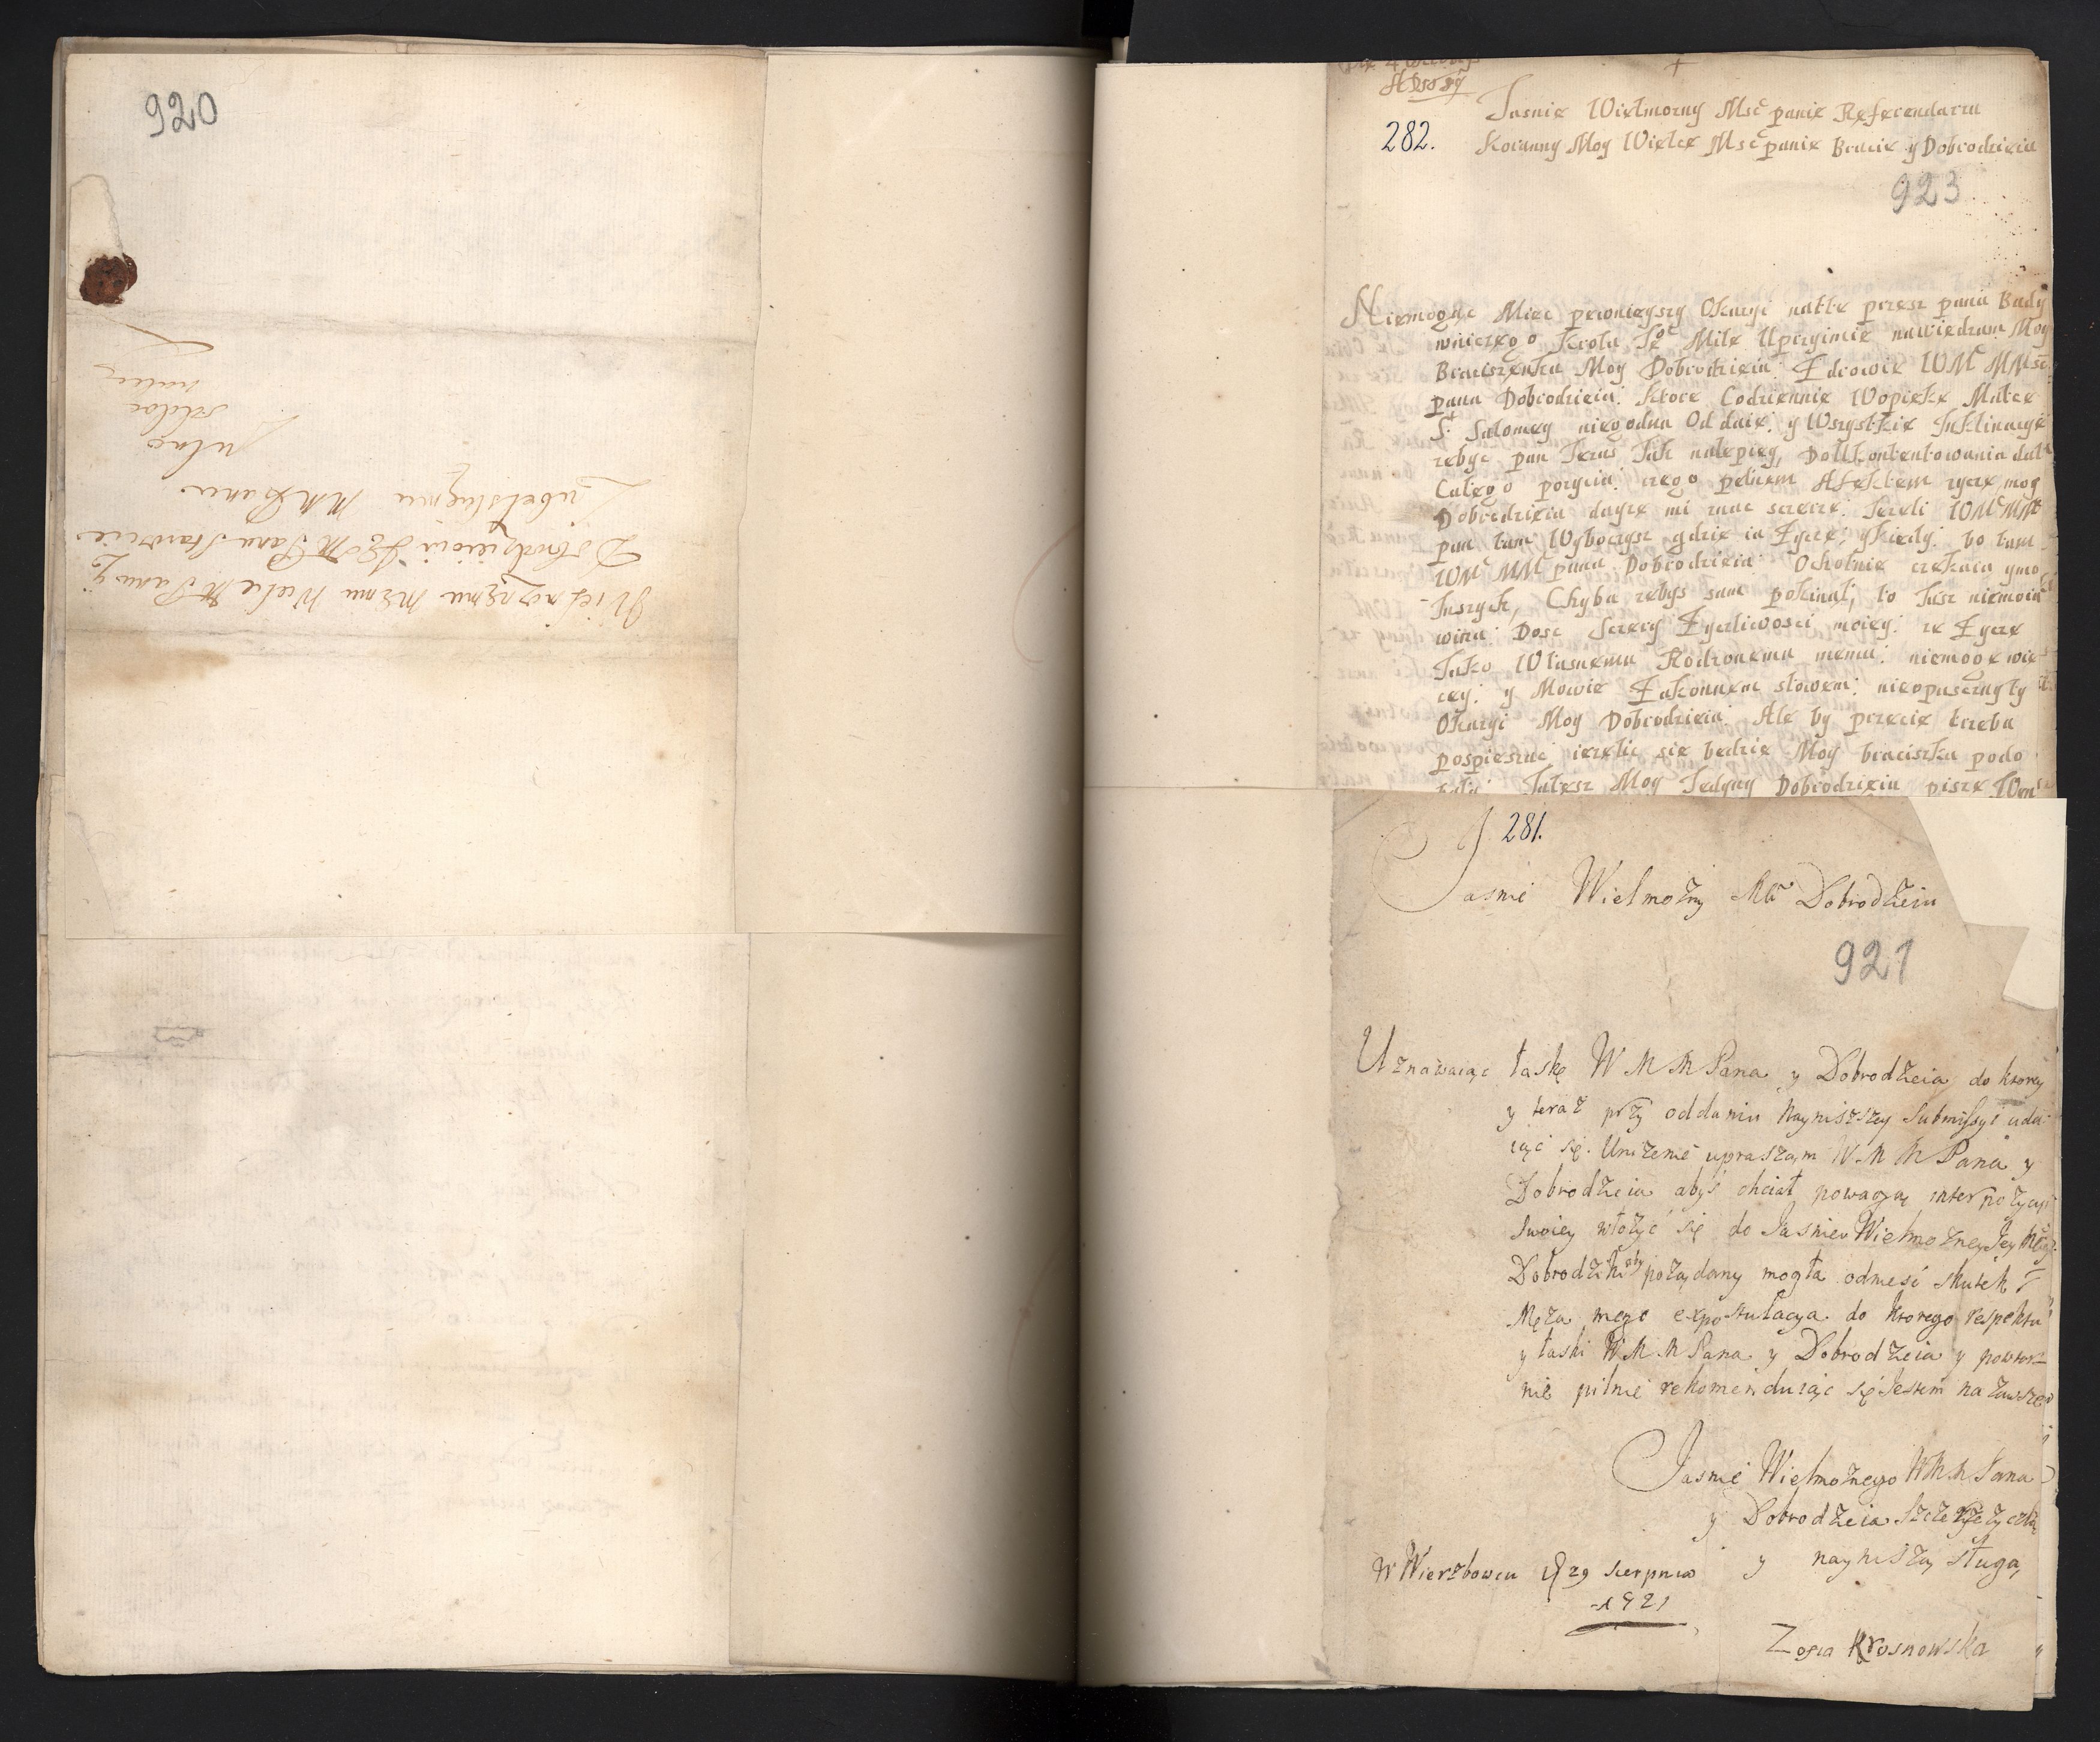 920
Wielmożnemu memu Wielce M Panu y
Dobrodzieiowi JE M Panu Staroscie
Lubelskiemu MM Panu
282.
Jasnie Wielmozny Msc panie Referendarzu
Koronny Moy Wielce Msc panie Bracie y Dobrodzieiu
923
Niemogąc Miec pewnieyszy Okazyi natte przesz pana Budy
wniczego Krola Je Mile Uprzymie nawiedzam Mog
Braciszenka Moy Dobrodzieiu: Zdrowie WMc MMsc
pana Dobrodzieia: ktore Codziennie Wopieke Matce
S. Salomey niegodna Oddaie: y Wszystkie Inklinacye
zebyc pan Jezus Jak nalepiey, Doukontentowania dał
Całego pozycia: czego pełnem Afektem zycze mog
Dobrodzieiu dayze mi znac szczerze: Jezeli WMc MM
pan tam Wyboczysz gdzie ia Zycze, ykiedy: bo tam
WMc MM pana Dobrodzieia Ochotnie czekaia ymo
Inszych, Chyba zebys sam pokinał, to Jusz niemoia
wina: Dosc Sczery Zyczliwosci moiey: ze Zycze
Jako Własnemu Rodzonemu memu: niemoge wie
cey: y Mowie Zakonnem słowem: nieopusczay ty
Okazyi Moy Dobrodzieiu: Ale by przecie trzeba
pospieszac iezelic sie bedzie Moy braciszku podo
Jutesz Moy Jedyny Dobrodzieiu pisze
281.
Jasnie Wielmożny Mci Dobrodzieiu
921
Uznawaiąc łaskę W M M Pana y Dobrodzieia, do ktorey
y teraz przy oddaniu Nayniszszey Submissyi uda
iąc się. Uniżenie upraszam W M M Pana y
Dobrodzieia abyś chciał powagą interpozycyi
Swoiey włożyć się do Jasniew Wielmożney Jey
Dobrodziki aby pożądany mogła odniesć skutek
Męża mego expostulacya do ktorego respektu
y łaski W M M Pana y Dobrodzieia y powtor=
nie pilnie rekomenduiąc się Jestem na zawsze
Jasnie Wielmożnego W M M Pana
y Dobrodzieia Szczerze życzliwą
y naynisza sługa,
W Wierzbowcu d 29 Sierpnia
1721
Zofia Krosnowska